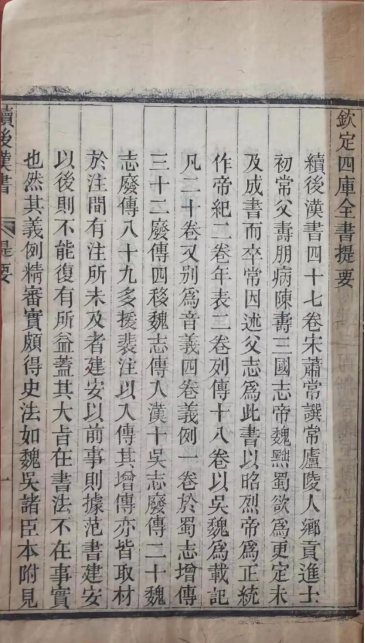 欽定四庫全書提要
續後漢書四十七卷宋蕭常譔常廬陵人鄉貢進士
初常父壽朋病陳壽三國志帝魏黜蜀欲爲更定未
及成書而卒常因述父志爲此書以昭烈帝爲正統
作帝紀二卷年表二卷列傳十八卷以吳魏爲載記
凡二十卷又別爲音義四卷義例一卷於蜀志增傳
三十二廢傳四移魏志傳入漢十吳志廢傳二十魏
志廢傳八十九多援裴注以入傳其增傳亦皆取材
於注間有注所未及者建安以前事則據范書建安
以後則不能復有所益蓋其大旨在書法不在事實
也然其義例精審實頗得史法如魏吳諸臣本附見
續後漢書 提要 一